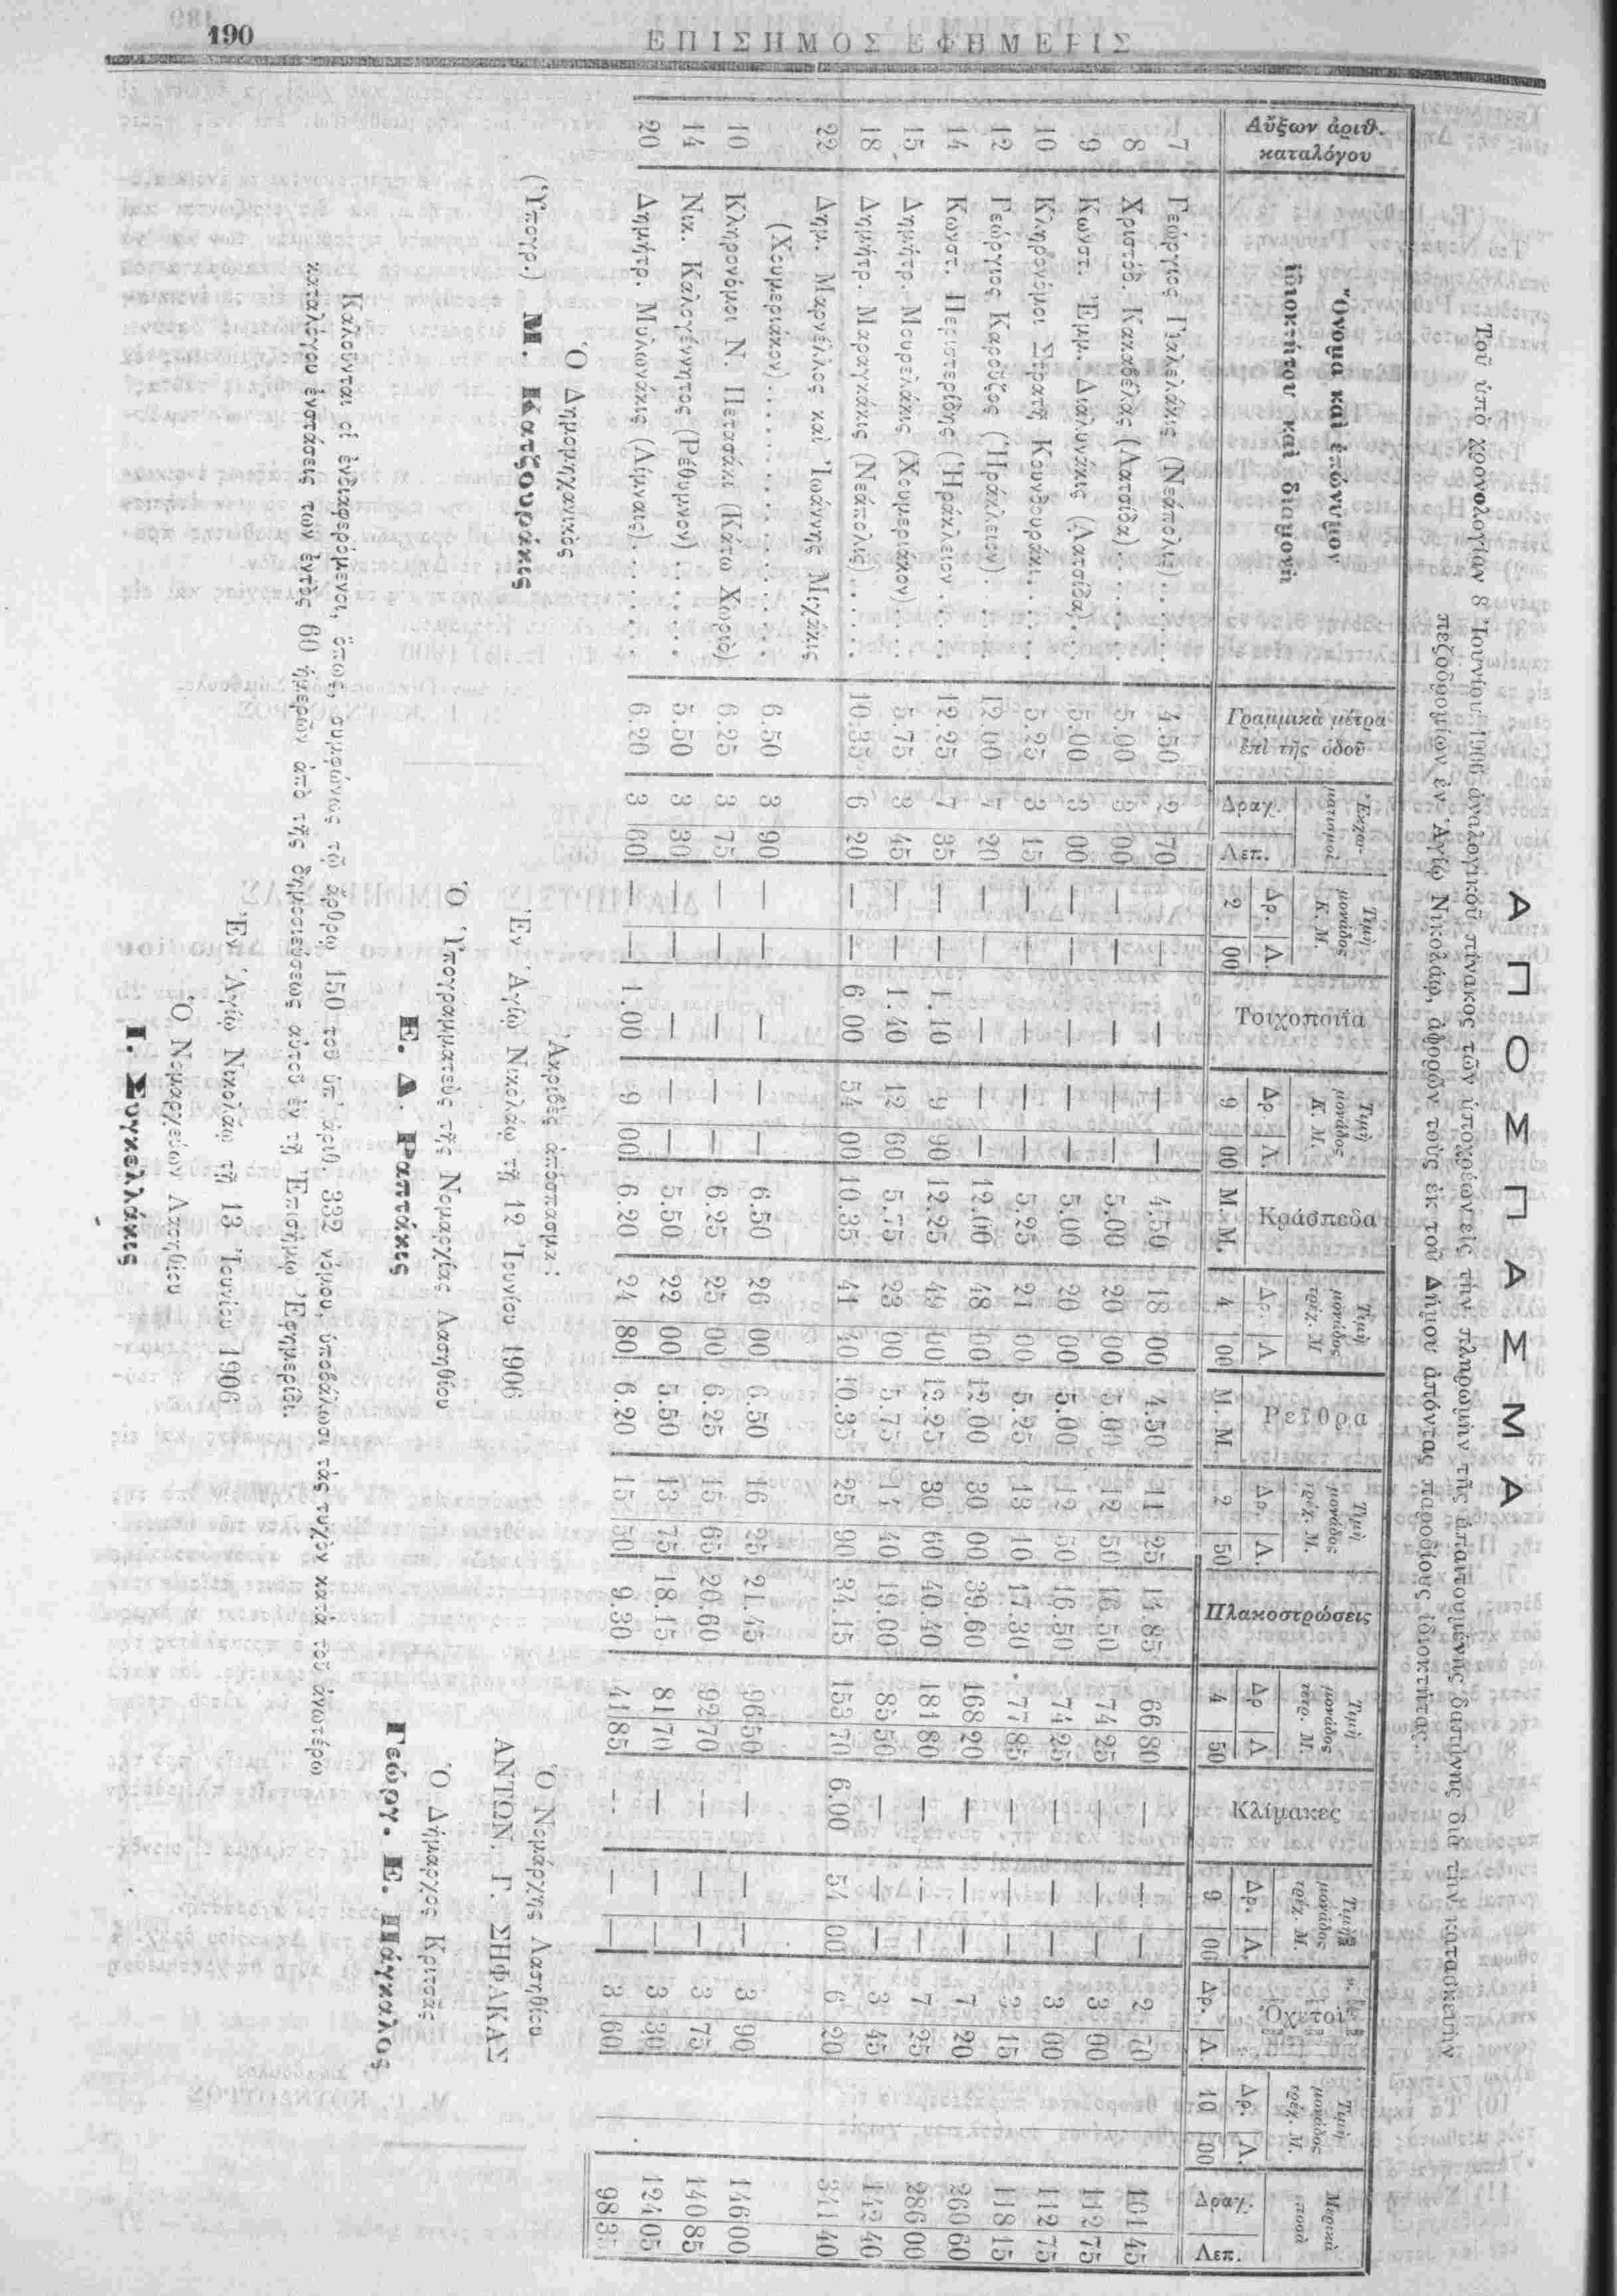 190
ΕΠΙΣΗΜΟΣ ΕΦΗΜΕΡΙΣ
ΑΠΟΣΠΑΣΜΑ
Τοῦ ἀπὸ χρονολογίαν 8 Ἰουνίου 1906 ἀναλογικοῦ πίνακος τῶν ὑποχρέων εἰς τὴν πληρωμὴν τῆς ἀπαιτουμένης δαπάνης διὰ τὴν κατασκευὴν
πεζοδρομίων ἐν Ἁγίῳ Νικολάῳ, ἀφορῶν τοὺς ἐκ τοῦ Δήμου ἀπόντας παροδίους ἰδιοκτήτας.
Αὔξων ἀριθ. καταλόγου | Ὄνομα καὶ ἐπώνυμον ἰδιοκτήτου καὶ διαμονὴ | Γραμμικὰ μέτρα ἐπὶ τῆς ὁδοῦ | Ἐκχωματισμοὶ Δραχ. Λεπ. | Τιμὴ μονάδος Κ. Μ. Δρ. Λ. 2 00 | Τοιχοποιΐα | Τιμὴ μονάδος Κ. Μ. Δρ Λ. 9 00 | Κράσπεδα Μ. Μ. | Τιμὴ μονάδος τρέχ. Μ Δρ. Λ. 4 00 | Ρεῖθρα Μ Μ | Τιμὴ μονάδος τρέχ. Μ. Δρ. Λ. 2 50 | Πλακοστρώσεις | Τιμὴ μονάδος τετρ. Μ. Δρ Λ 4 50 | Κλίμακες | Τιμὴ μονάδος τρέχ. Μ. Δρ. Λ. 9 00 | Ὀχετοὶ Δρ. Λ. | Τιμὴ μονάδος τρέχ. Μ. Δρ. Λ. 10 00 | Μερικὰ ποσὰ Δραχ. Λεπ.
7 Γεώργιος Γιαλελάκις (Νεάπολις).... 4.50 2 70 — — — — — 4.50 18 00 4.50 11 25 14.85 66 80 — — — 2 70 101 45
8 Χριστόδ. Καναβέλας (Λατσίδα)..... 5.00 3 00 — — — — — 5.00 20 00 5.00 12 50 16.50 74 25 — — — 3 00 112 75
9 Κωνστ. Ἐμμ. Διαλυνάκις (Λατσίδα).. 5.00 3 00 — — — — — 5.00 20 00 5.00 12 50 16.50 74 25 — — — 3 00 112 75
10 Κληρονόμοι Στρατῆ Κουνδουράκι.... 5.25 3 15 — — — — — 5.25 21 00 5.25 13 10 17.30 77 85 — — — 3 15 118 15
12 Γεώργιος Καροῦζος (Ἡράκλειον).... 12.00 7 20 — — — — — 12.00 48 00 12.00 30 00 39.60 168 20 — — — 7 20 260 60
14 Κωνστ. Περιστερίδης (Ἡράκλειον... 12.25 7 35 — — 1.10 9 90 12.25 49 00 12.25 30 60 40.40 181 80 — — — 7 25 286 00
15 Δημήτρ. Μουρελάκις (Χουμεριάκον).. 5.75 3 45 — — 1.40 12 60 5.75 23 00 5.75 14 40 19.00 85 50 — — — 3 45 142 40
18 Δημήτρ. Μαραγκάκις (Νεάπολις..... 10.35 6 20 — — 6 00 54 00 10.35 41 40 10.35 25 90 34.15 153 70 6.00 54 00 6 20 341 40
22 Δημ. Μαρνέλλος καὶ Ἰωάννης Μιχάκις
(Χουμεριάκον)........... 6.50 3 90 — — — — — 6.50 26 00 6.50 16 25 21.45 96 50 — — — 3 90 146 00
10 Κληρονόμοι Ν. Πετασάκι (Κάτω Χωριὸ) 6.25 3 75 — — — — — 6.25 25 00 6.25 15 65 20.60 92 70 — — — 3 75 140 85
14 Νικ. Καλογέννητος (Ρέθυμνον)..... 5.50 3 30 — — — — — 5.50 22 00 5.50 13 75 18.15 81 70 — — — 3 30 124 05
20 Δημήτρ. Μυλωνάκις (Λίμναις)...... 6.20 3 60 — — 1.00 9 00 6.20 24 80 6.20 15 50 9.30 41 85 — — — 3 60 98 3
Ὁ Δημομηχανικὸς
(Ὑπογρ.) Μ. Κατζουράκις
Ἀκριβὲς ἀπόσπασμα:
Ἐν Ἁγίῳ Νικολάῳ τῇ 12 Ἰουνίου 1906
Ὁ Ὑπογραμματεὺς τῆς Νομαρχίας Λασηθίου
Ε. Δ. Ραπτάκις
Ὁ Νομάρχης Λασηθίου
ΑΝΤΩΝ. Γ. ΣΗΦΑΚΑΣ
Ὁ Δήμαρχος Κριτσᾶς
Γεώργ. Ε. Πάγκαλος
Καλοῦνται οἱ ἐνδιαφερόμενοι, ὅπως, συμφώνως τῷ ἄρθρῳ 150 τοῦ ὑπ' ἀριθ. 332 νόμου, ὑποβάλωσι τὰς τυχὸν κατὰ τοῦ ἀνωτέρω
καταλόγου ἐνστάσεις των ἐντὸς 60 ἡμερῶν ἀπὸ τῆς δημοσιεύσεως αὐτοῦ ἐν τῇ Ἐπισήμῳ Ἐφημερίδι.
Ἐν Ἁγίῳ Νικολάῳ τῇ 13 Ἰουνίου 1906
Ὁ Νομαρχεύων Λασηθίου
Ι. Συγκελλάκις